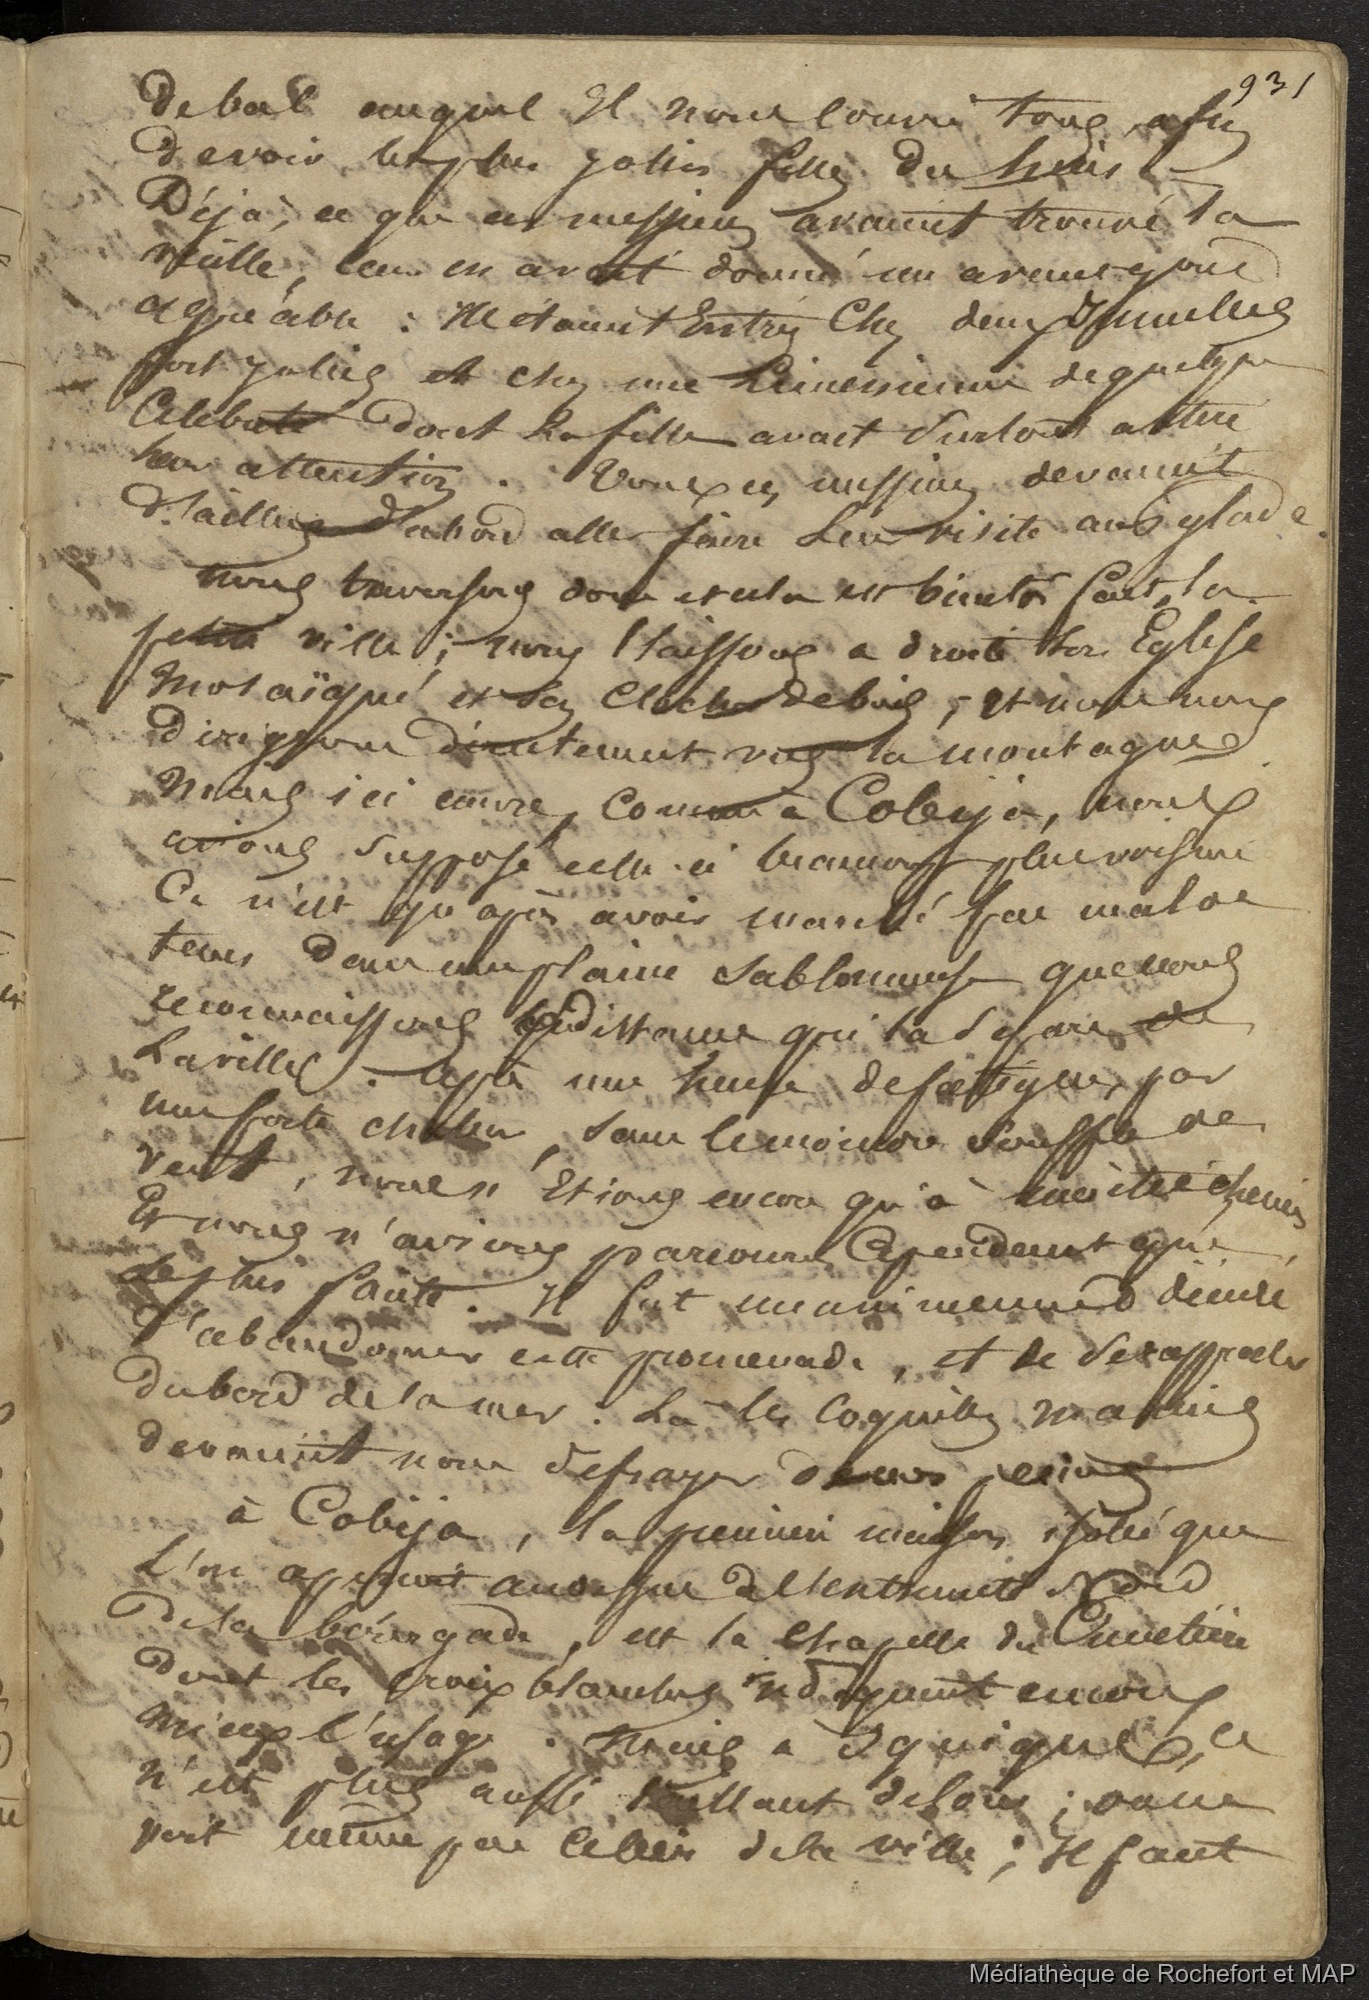 931
de bal auquel Il nous convie tous, afin
de voir les plus jolies filles du huis
Déjà, ce que ces messieurs avaient trouvé la
veille, leur en avait donné un avant gout
agréable : Ils étaient Entrés Chez deux Jumelles
fort jolies et chez une Limenienne de quelque
Célébrité dont La fille avait Surtout attiré
leur attention. Tous ces messieurs devaient
d'ailleurs d'abord aller faire Leur visite
nous traversons donc et cela est bientot fait, la
petite ville ; nous laissons a droite Son Eglise
Mosaïqué et Ses Cloches de bois ; et nous nous
dirigeons directement vers la montagne
Mais ici encore, Comme à Cobija, nous
avions Supposé celle ci beaucoup plus voisine
Ce n'est qu'après avoir marché pas mal de
tems Dans une plaine Sablonneuse que nous
reconnaissons la distance qui la Separe de
La ville. après une heure de fatigues, par
une forte chaleur, Sans le moindre Souffle de
vent, nous n'Etions encore qu'à moitié chemin
Et nous n'avions parcouru Cependant que
. Il fut unanimement décidé
d'abandonner cette promenade, et de Se rapprocher
du bord de la mer : Là les Coquilles marines
devaient nous défrayer de nos peines
à Cobija, la première maison isolée que
L'on aperçoit au dessus de l'extremité Nord
De la bourgade, est la Chapelle du Cimetière
dont les croix blanches indiquent encore
mieux l'usage. Mais a Iquique, ce
n'est plus aussi Saillant de loin ;
voit même pas Celui de la ville ; Il faut
Médiathèque de Rochefort et MAP